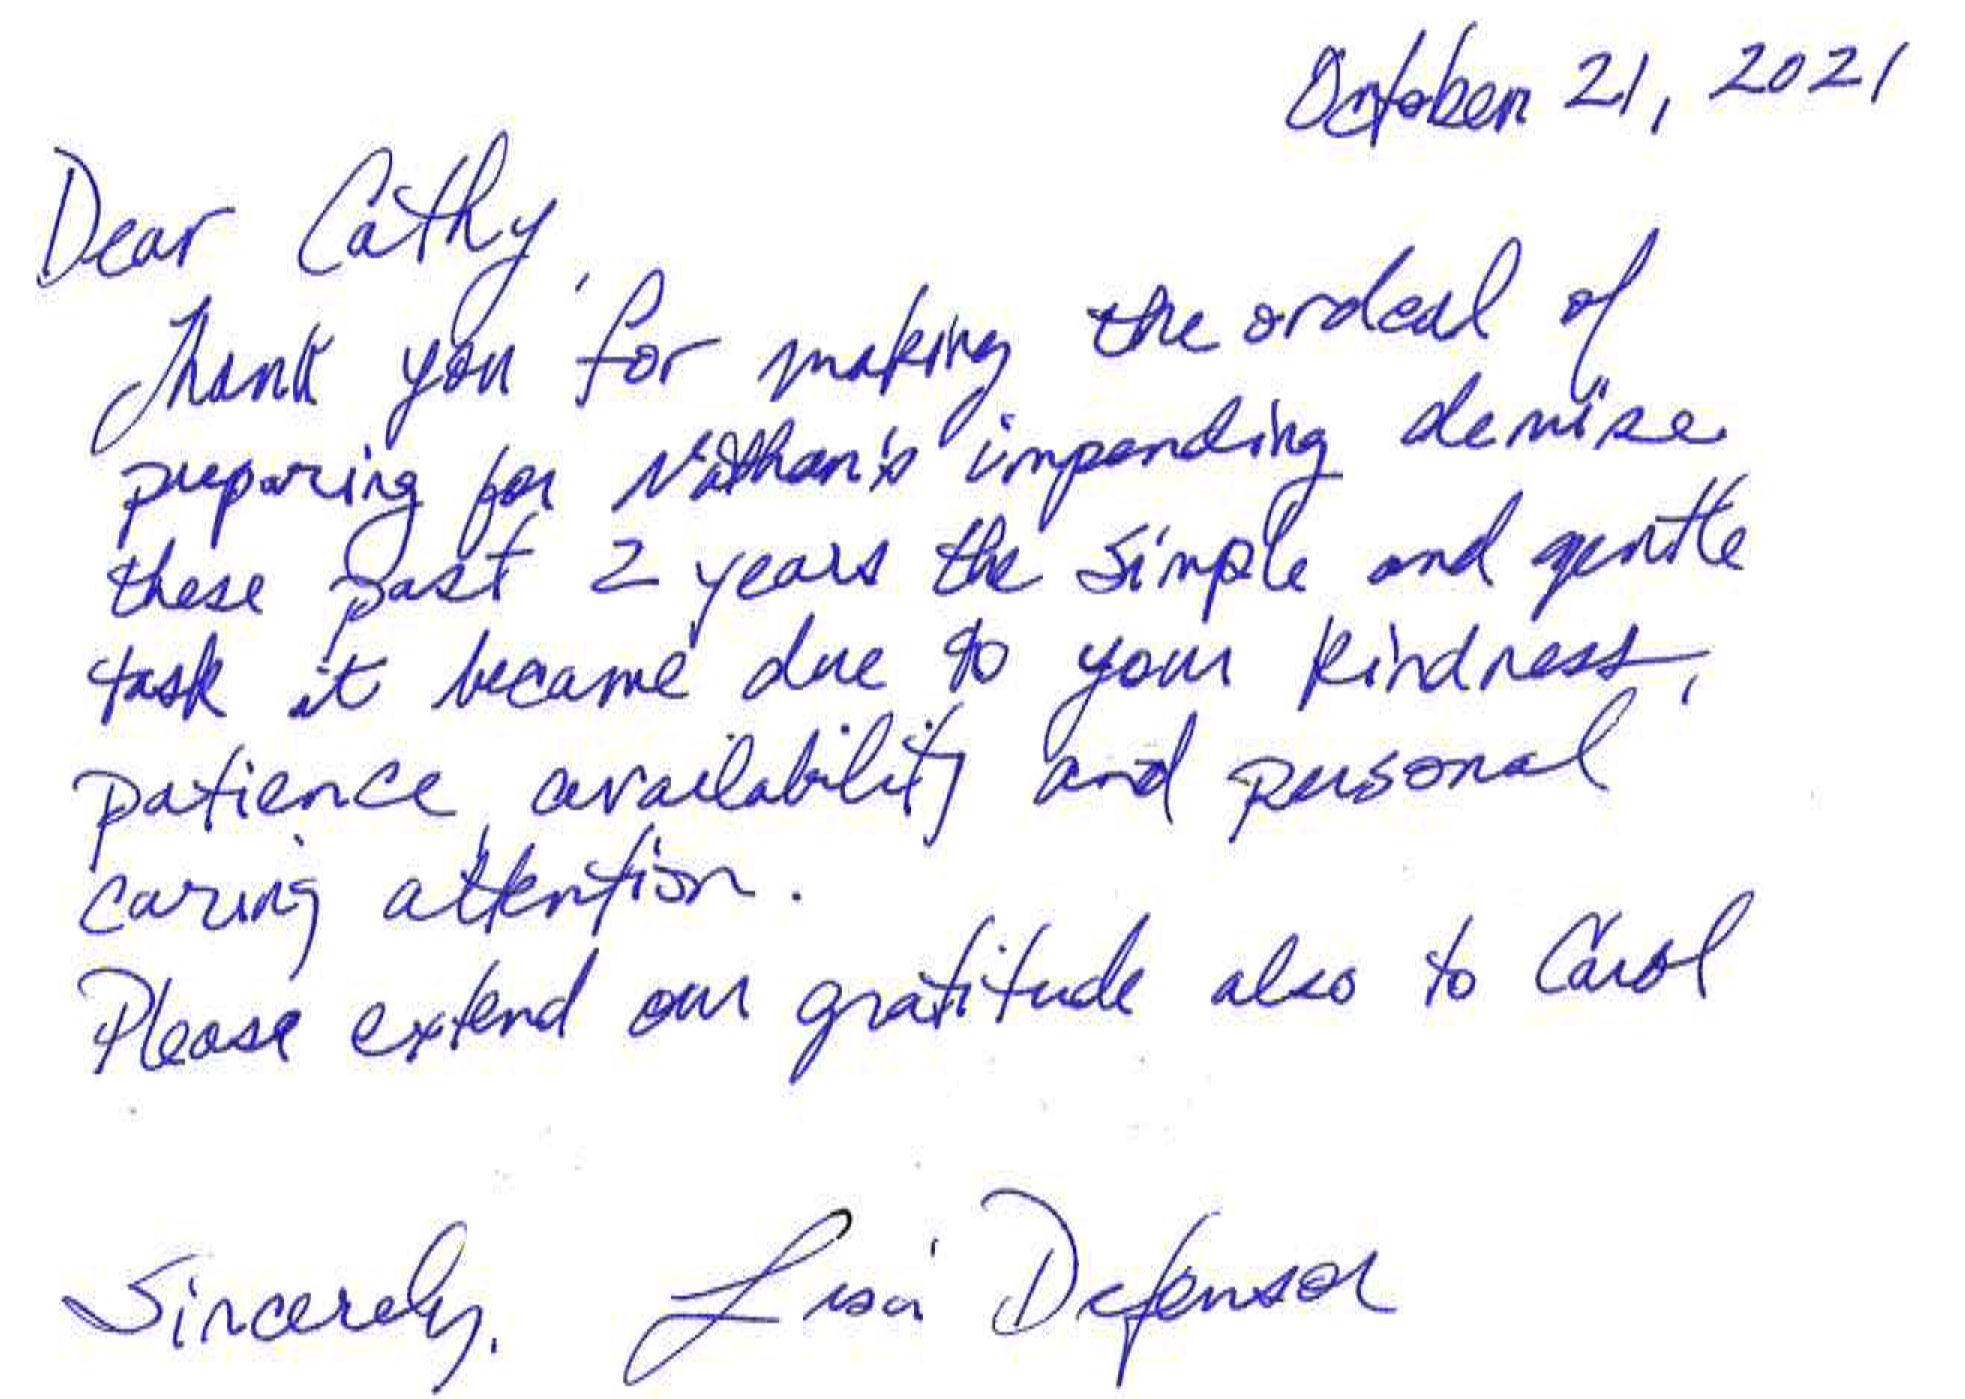 October 21, 2021
Dear Cathy,
Thank you for making the ordeal of
preparing for Nathan's impending demise
these past 2 years the simple and gentle
task it became due to your kindness,
patience, availability and personal
caring attention.
Please extend our gratitude also to Carol
Sincerely, Lisa Defensor